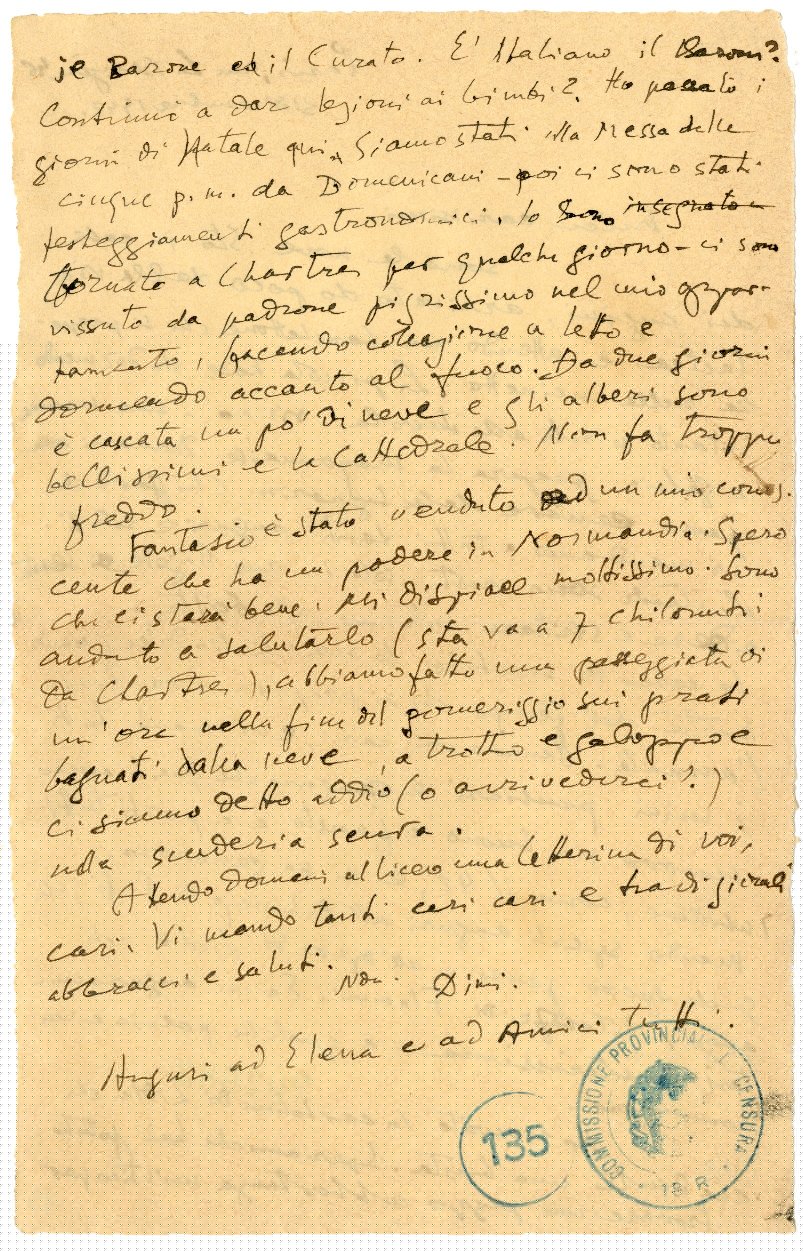 je Barone ed il Curato. E' Italiano il Barone?
Continui a dar lezioni ai bimbi? Ho passato i
giorni di Natale qui, Siamo stati alla Messa delle
cinque p.m. da Domenicani – poi ci sono stati
festeggiamenti gastronomici. Io sono insegnato
tornato a Chartres per qualche giorno – ci sono
vissuto da padrone pigrissimo nel mio appar-
tamento, facendo colazione a letto e
dormendo accanto al fuoco. Da due giorni
è cascata un po' di neve e gli alberi sono
bellissimi e la Cattedrale. Non fa troppo
freddo.
Fantasio è stato venduto ad un mio conos.
cente che ha un podere in Normandia. Spero
che ci starà bene, mi dispiace moltissimo. Sono
andato a salutarlo (sta va a 7 chilometri
da Chartres), abbiamo fatto una passeggiata di
un'ora nella fine del pomeriggio sui prati
bagnati dalla neve, a trotto e galoppo e
ci siamo detto addio (o arrivederci?)
nella scuderia scura.
Attendo domani al liceo una letterina di voi,
cari. Vi mando tanti cari cari e
abbracci e saluti. Dimi.
Auguri ad Elena e ad Amici tutti.
135
COMMISSIONE PROVINCIALE CENSURA
18 R